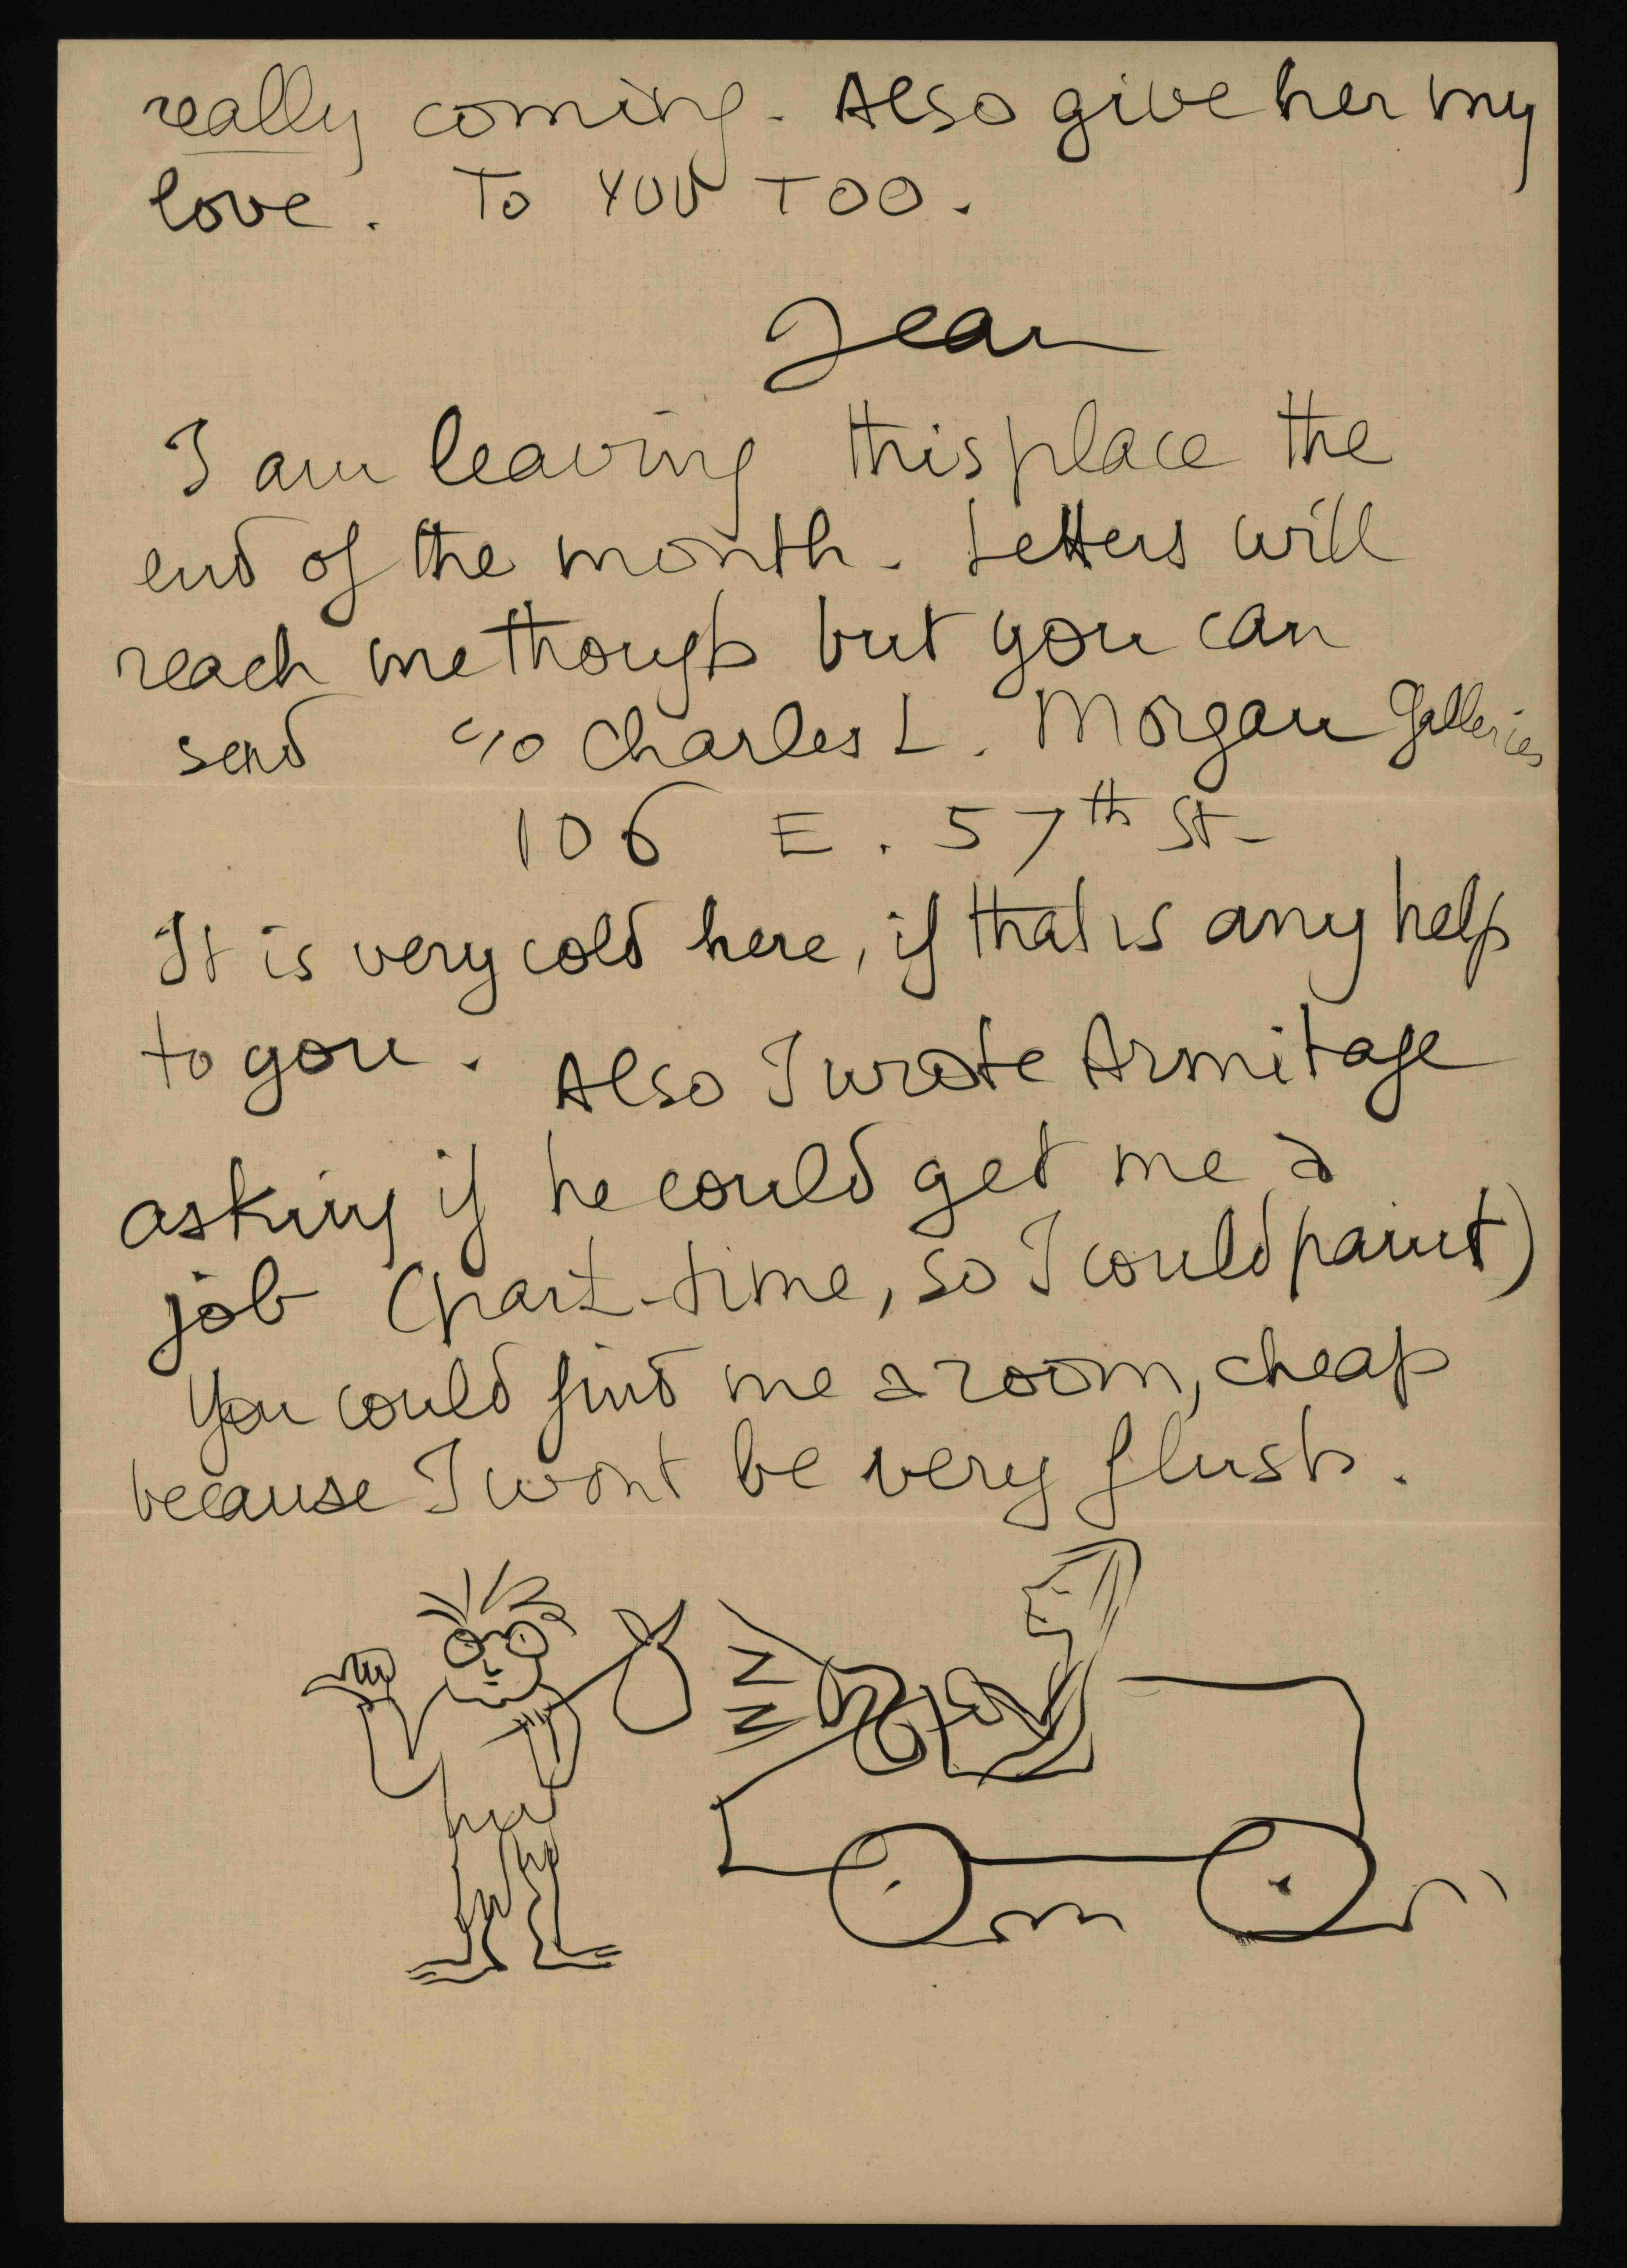 really coming. Also give her my
love. To YOU TOO.
Jean
I am leaving this place the
end of the month. Letters will
reach me though but you can
send c/o Charles L. Morgan Galleries
106 E. 57th St-
It is very cold here, if that is any help
to you. Also I wrote Armitage
asking if he could get me a
job (part-time, so I could paint)
You could find me a room, cheap
because I wont be very flush.